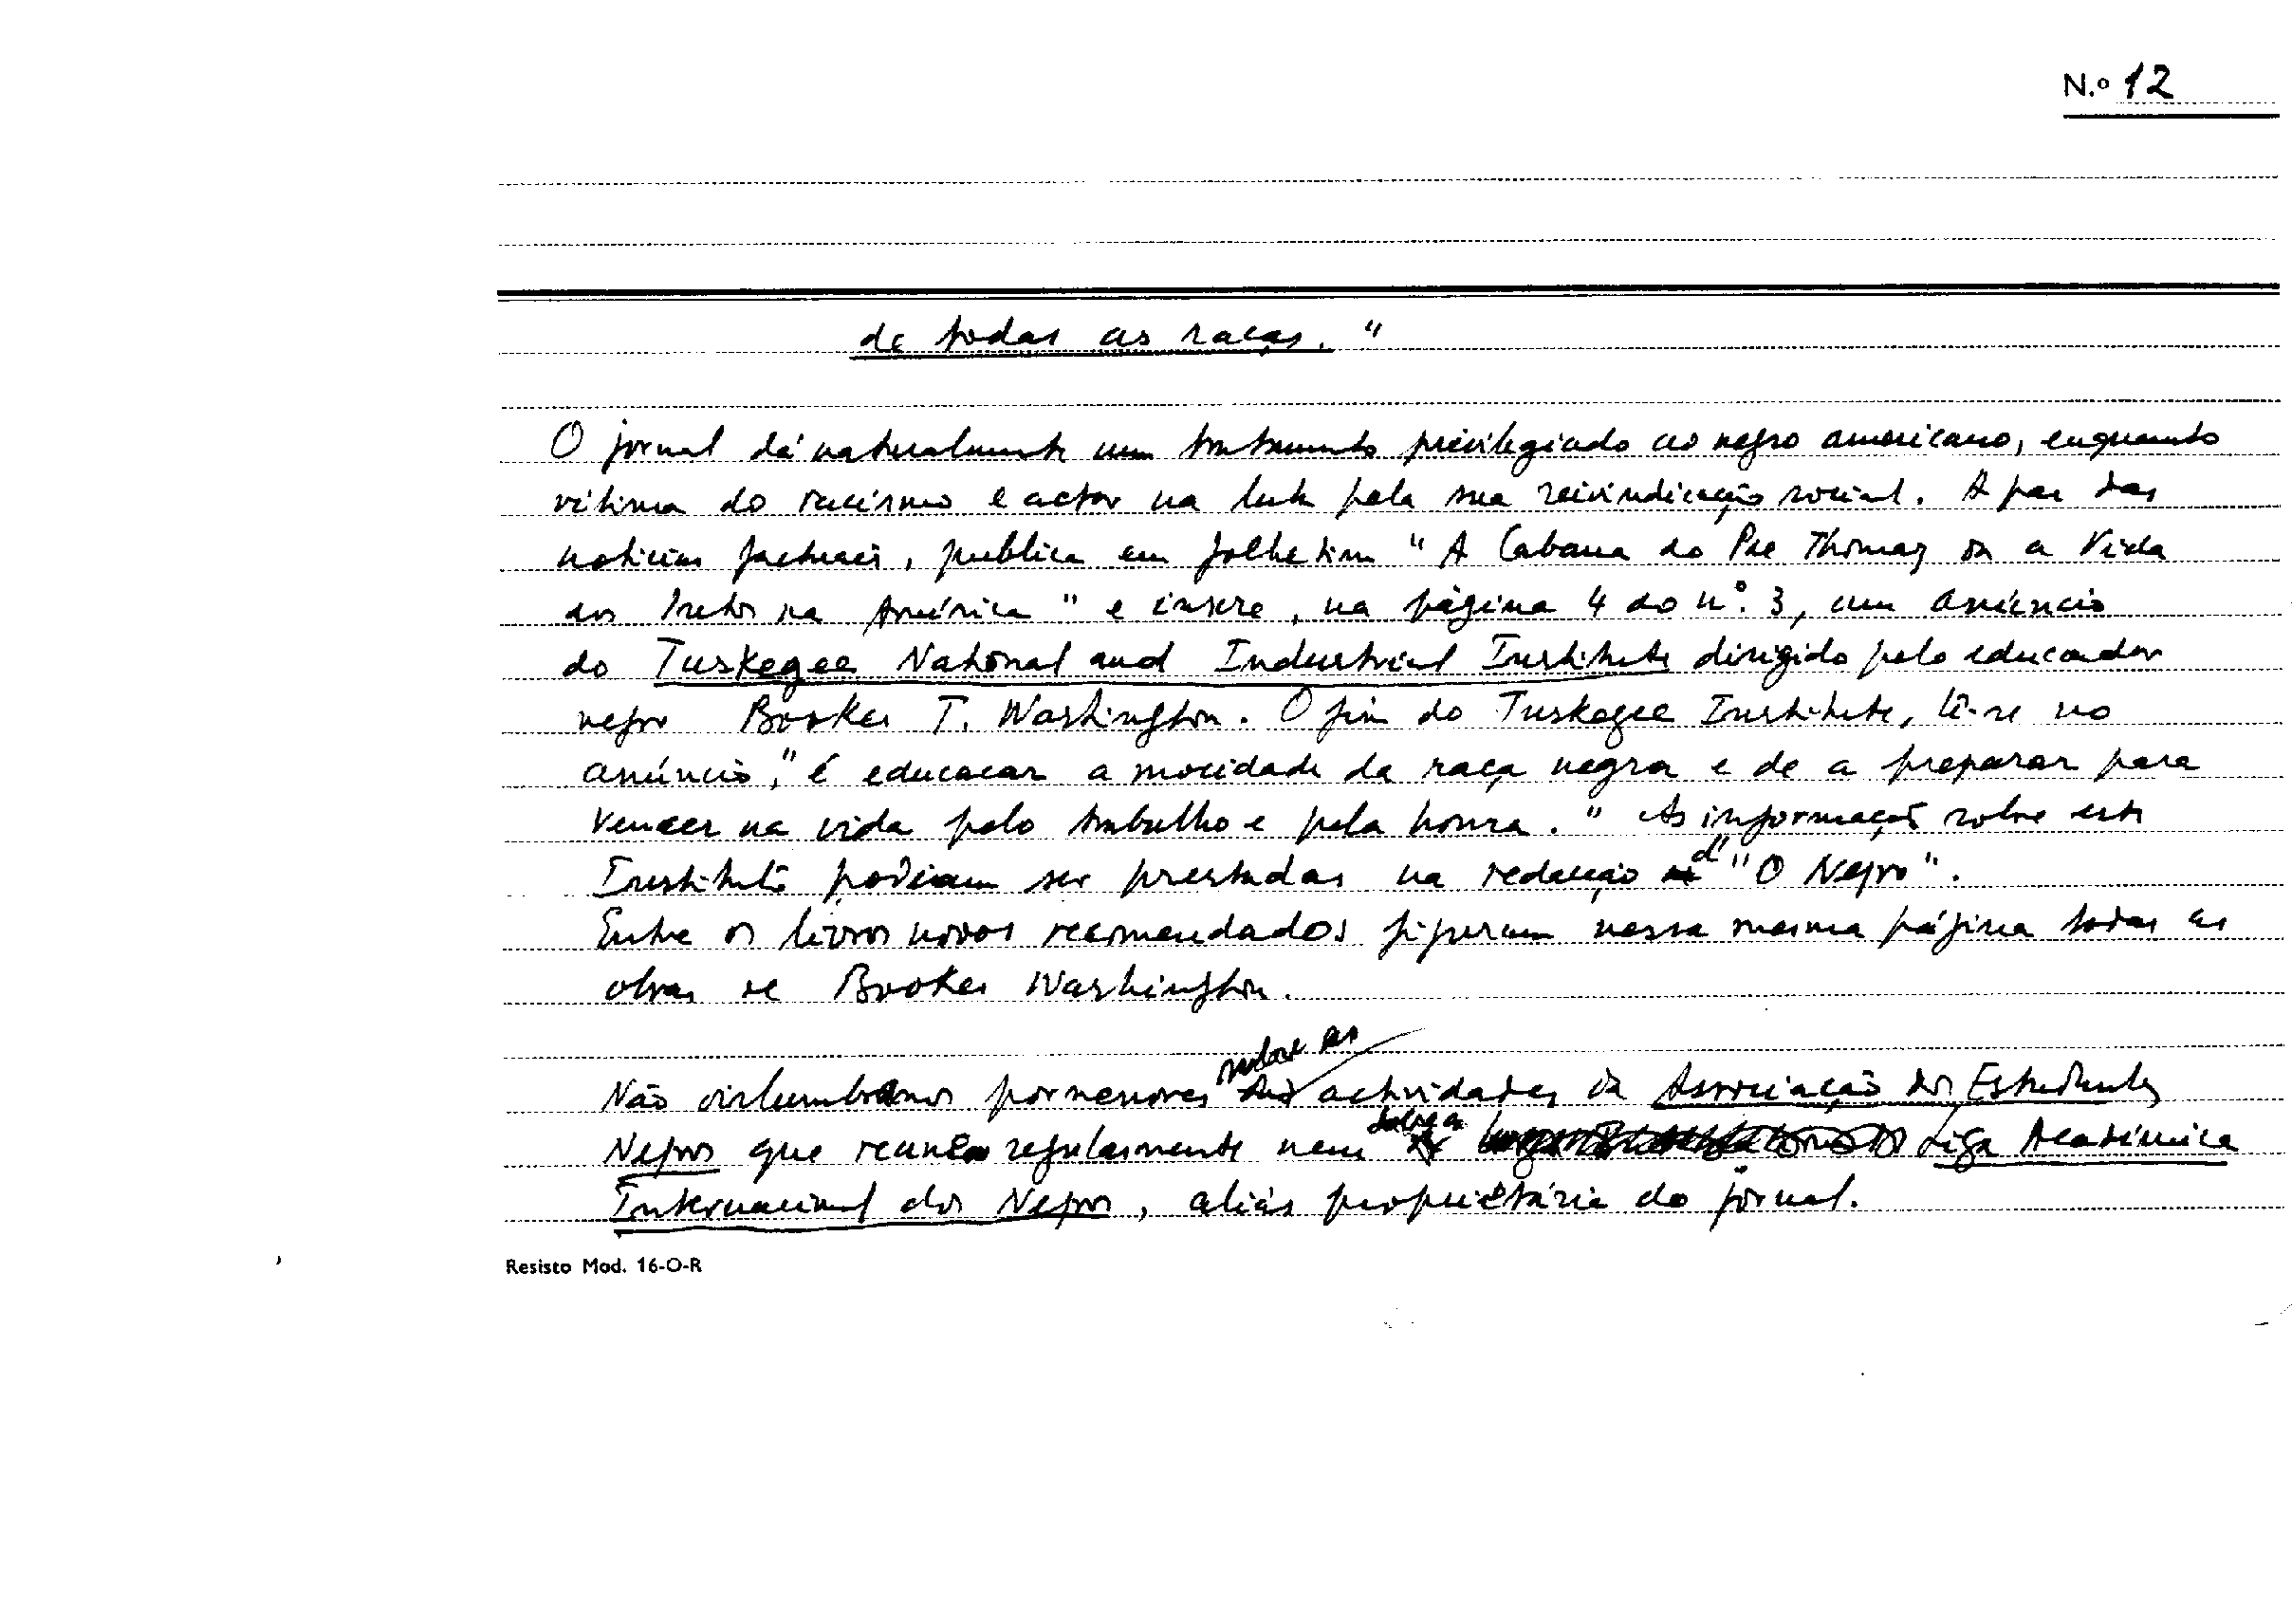 N.º 12
de todas as raças."
O jornal dá naturalmente um tratamento privilegiado ao negro americano, enquanto
vítima do racismo e actor na luta pela sua reivindicação social. A par das
notícias factuais, publica em folhetim "A Cabana do Pae Thomaz ou a Vida
dos Pretos na América" e insere, na página 4 do nº. 3, um anúncio
do Tuskegee National and Industrial Institute dirigido pelo educador
negro Booker T. Washington. O fim do Tuskegee Institute, lê-se no
anúncio, "é educacar a mocidade da raça negra e de a preparar para
vencer na vida pelo trabalho e pela honra." As informações sobre este
Instituto podiam ser prestadas na redacção d'"O Negro".
Entre os livros novos recomendados figuram nessa mesma página todas as
obras de Booker Washington.
Não vislumbramos pormenores sobre as actividades da Associação dos Estudantes
Negros que reunia regularmente nem sobre a Liga Académica
Internacional dos Negros, aliás proprietária do jornal.
Resisto Mod. 16-O-R